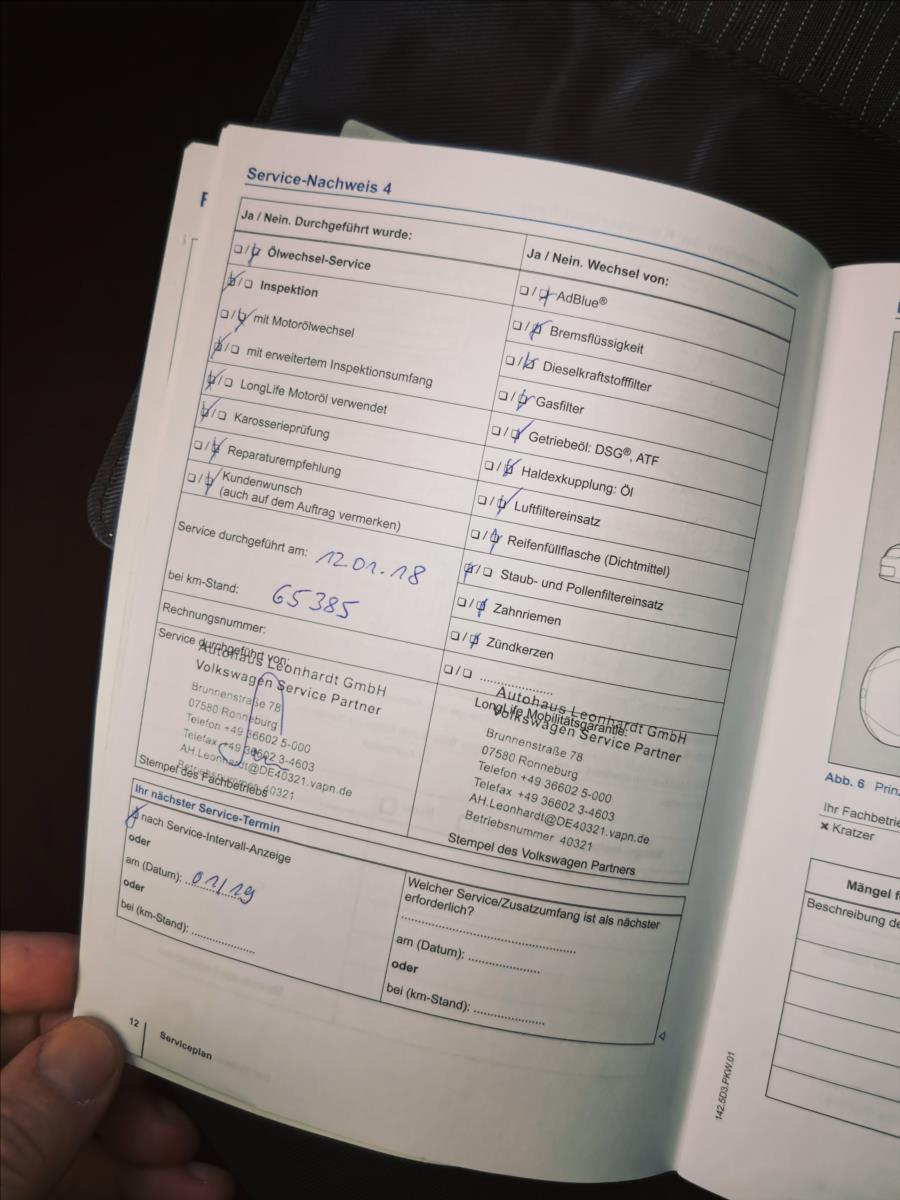 Service-Nachweis 4
Ja / Nein. Durchgeführt wurde:
❏ / ❏ Ölwechsel-Service
❏ / ❏ Inspektion
❏ / ❏ mit Motorölwechsel
❏ / ❏ mit erweitertem Inspektionsumfang
❏ / ❏ LongLife Motoröl verwendet
❏ / ❏ Karosserieprüfung
❏ / ❏ Reparaturempfehlung
❏ / ❏ Kundenwunsch
(auch auf dem Auftrag vermerken)
Service durchgeführt am: 12.01.18
bei km-Stand: 65385
Rechnungsnummer:
Service durchgeführt von:
Autohaus Leonhardt GmbH
Volkswagen Service Partner
Brunnenstraße 78
07580 Ronneburg
Telefon +49 36602 5-000
Telefax +49 36602 3-4603
AH.Leonhardt@DE40321.vapn.de
Betriebsnummer 40321
Stempel des Fachbetriebs
Ja / Nein. Wechsel von:
❏ / ❏ AdBlue®
❏ / ❏ Bremsflüssigkeit
❏ / ❏ Dieselkraftstofffilter
❏ / ❏ Gasfilter
❏ / ❏ Getriebeöl: DSG®, ATF
❏ / ❏ Haldexkupplung: Öl
❏ / ❏ Luftfiltereinsatz
❏ / ❏ Reifenfüllflasche (Dichtmittel)
❏ / ❏ Staub- und Pollenfiltereinsatz
❏ / ❏ Zahnriemen
❏ / ❏ Zündkerzen
❏ / ❏ ......................
Autohaus Leonhardt GmbH
LongLife Mobilitätsgarantie:
Volkswagen Service Partner
Brunnenstraße 78
07580 Ronneburg
Telefon +49 36602 5-000
Telefax +49 36602 3-4603
AH.Leonhardt@DE40321.vapn.de
Betriebsnummer 40321
Stempel des Volkswagen Partners
Ihr nächster Service-Termin
❏ nach Service-Intervall-Anzeige
oder
am (Datum): 01/19
oder
bei (km-Stand): ....................
Welcher Service/Zusatzumfang ist als nächster
erforderlich?
......................................................
am (Datum): ......................
oder
bei (km-Stand): ......................
12
Serviceplan
142.5D3.PKW.01
Abb. 6 Prinz
Ihr Fachbetrie
✗ Kratzer
Mängel f
Beschreibung de